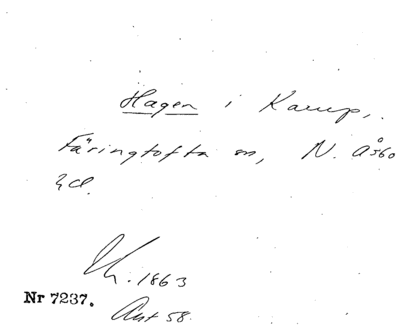 Hagen i Karup,
Färingtofta sn, N. Åsbo
hd.
Ek. 1863
Nr 7237.
Aut 58.